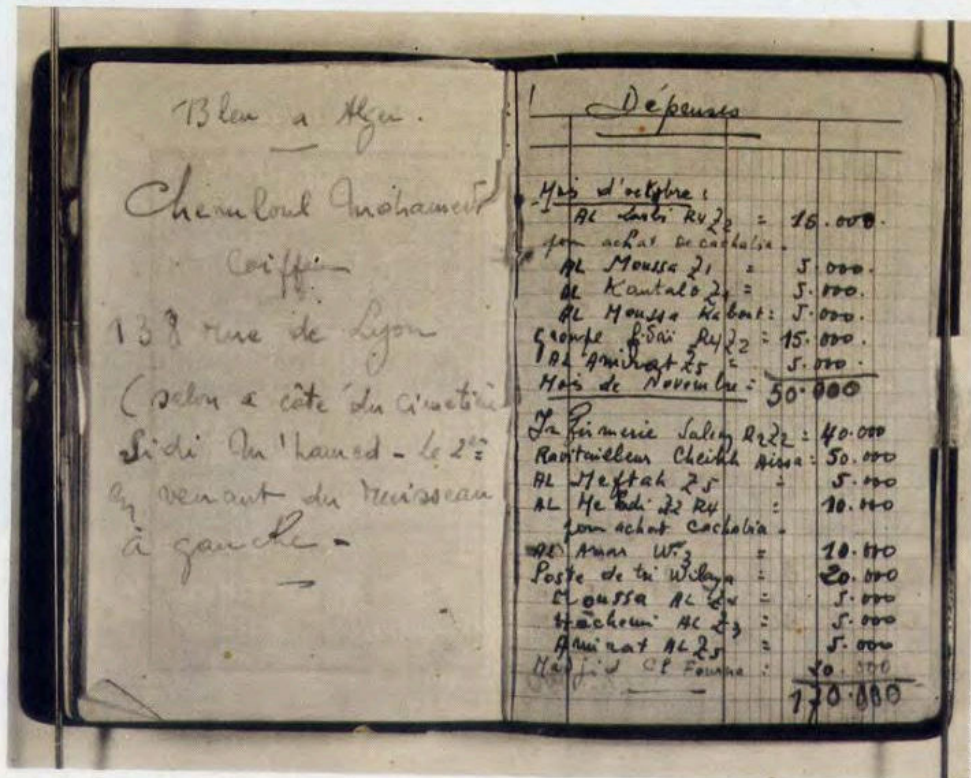 Bleu a Alger.
Chemloul Mohamed
Coiffeur
138 rue de Lyon
(salon a côté du cimetière
Sidi M'hamed - le 2è
en venant du Ruisseau
à gauche -
Dépenses
Mois d'octobre :
AL Larbi R4 Z2 = 15.000.
pour achat de cachabia.
AL Moussa Z1 = 5.000.
AL Kantalo = 5.000.
AL Moussa = 5.000.
groupe R4Z2 = 15.000.
AL Amirat Z5 = 5.000.
Mois de Novembre : 50.000
Infirmerie Salim R2Z2 = 40.000
Ravitailleur Cheikh Aissa : 50.000
AL Meftah Z5 = 5.000
AL Z2 R4 : 10.000
pour achat Cachabia -
AL Amar W.3 = 10.000
Poste de tri Wilaya = 20.000
Moussa AL = 5.000
Hachemi AL Z3 = 5.000
Amirat AL Z5 = 5.000
Madjid : 20.000
170.000